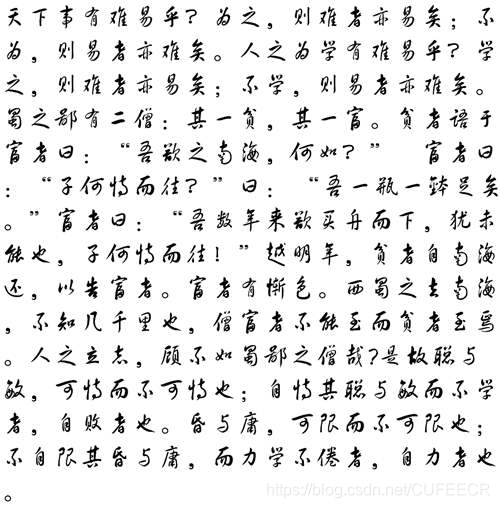 天下事有难易乎？为之，则难者亦易矣；不
为，则易者亦难矣。人之为学有难易乎？学
之，则难者亦易矣；不学，则易者亦难矣。
蜀之鄙有二僧：其一贫，其一富。贫者语于
富者曰：“吾欲之南海，何如？” 富者曰
：“子何恃而往？”曰：“吾一瓶一钵足矣
。”富者曰：“吾数年来欲买舟而下，犹未
能也，子何恃而往！”越明年，贫者自南海
还，以告富者。富者有惭色。西蜀之去南海
，不知几千里也，僧富者不能至而贫者至焉
。人之立志，顾不如蜀鄙之僧哉?是故聪与
敏，可恃而不可恃也；自恃其聪与敏而不学
者，自败者也。昏与庸，可限而不可限也；
不自限其昏与庸，而力学不倦者，自力者也
。
https://blog.csdn.net/CUFEECR